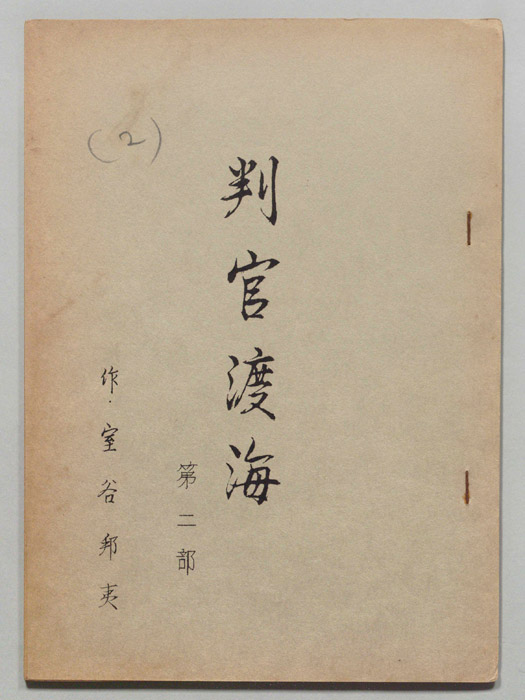 判官渡海
第二部
作・室谷邦夷
(2)